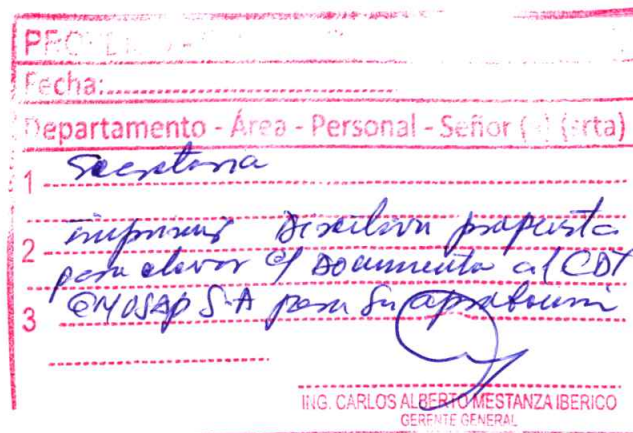 Fecha:
Departamento - Área - Personal - Señor ( ) ( rta)
1 Secretaria
imprimir Directiva propuesta
2 para elevar el Documento al CDT
3 EMOSAP S.A para su aprobación
ING. CARLOS ALBERTO MESTANZA IBERICO
GERENTE GENERAL